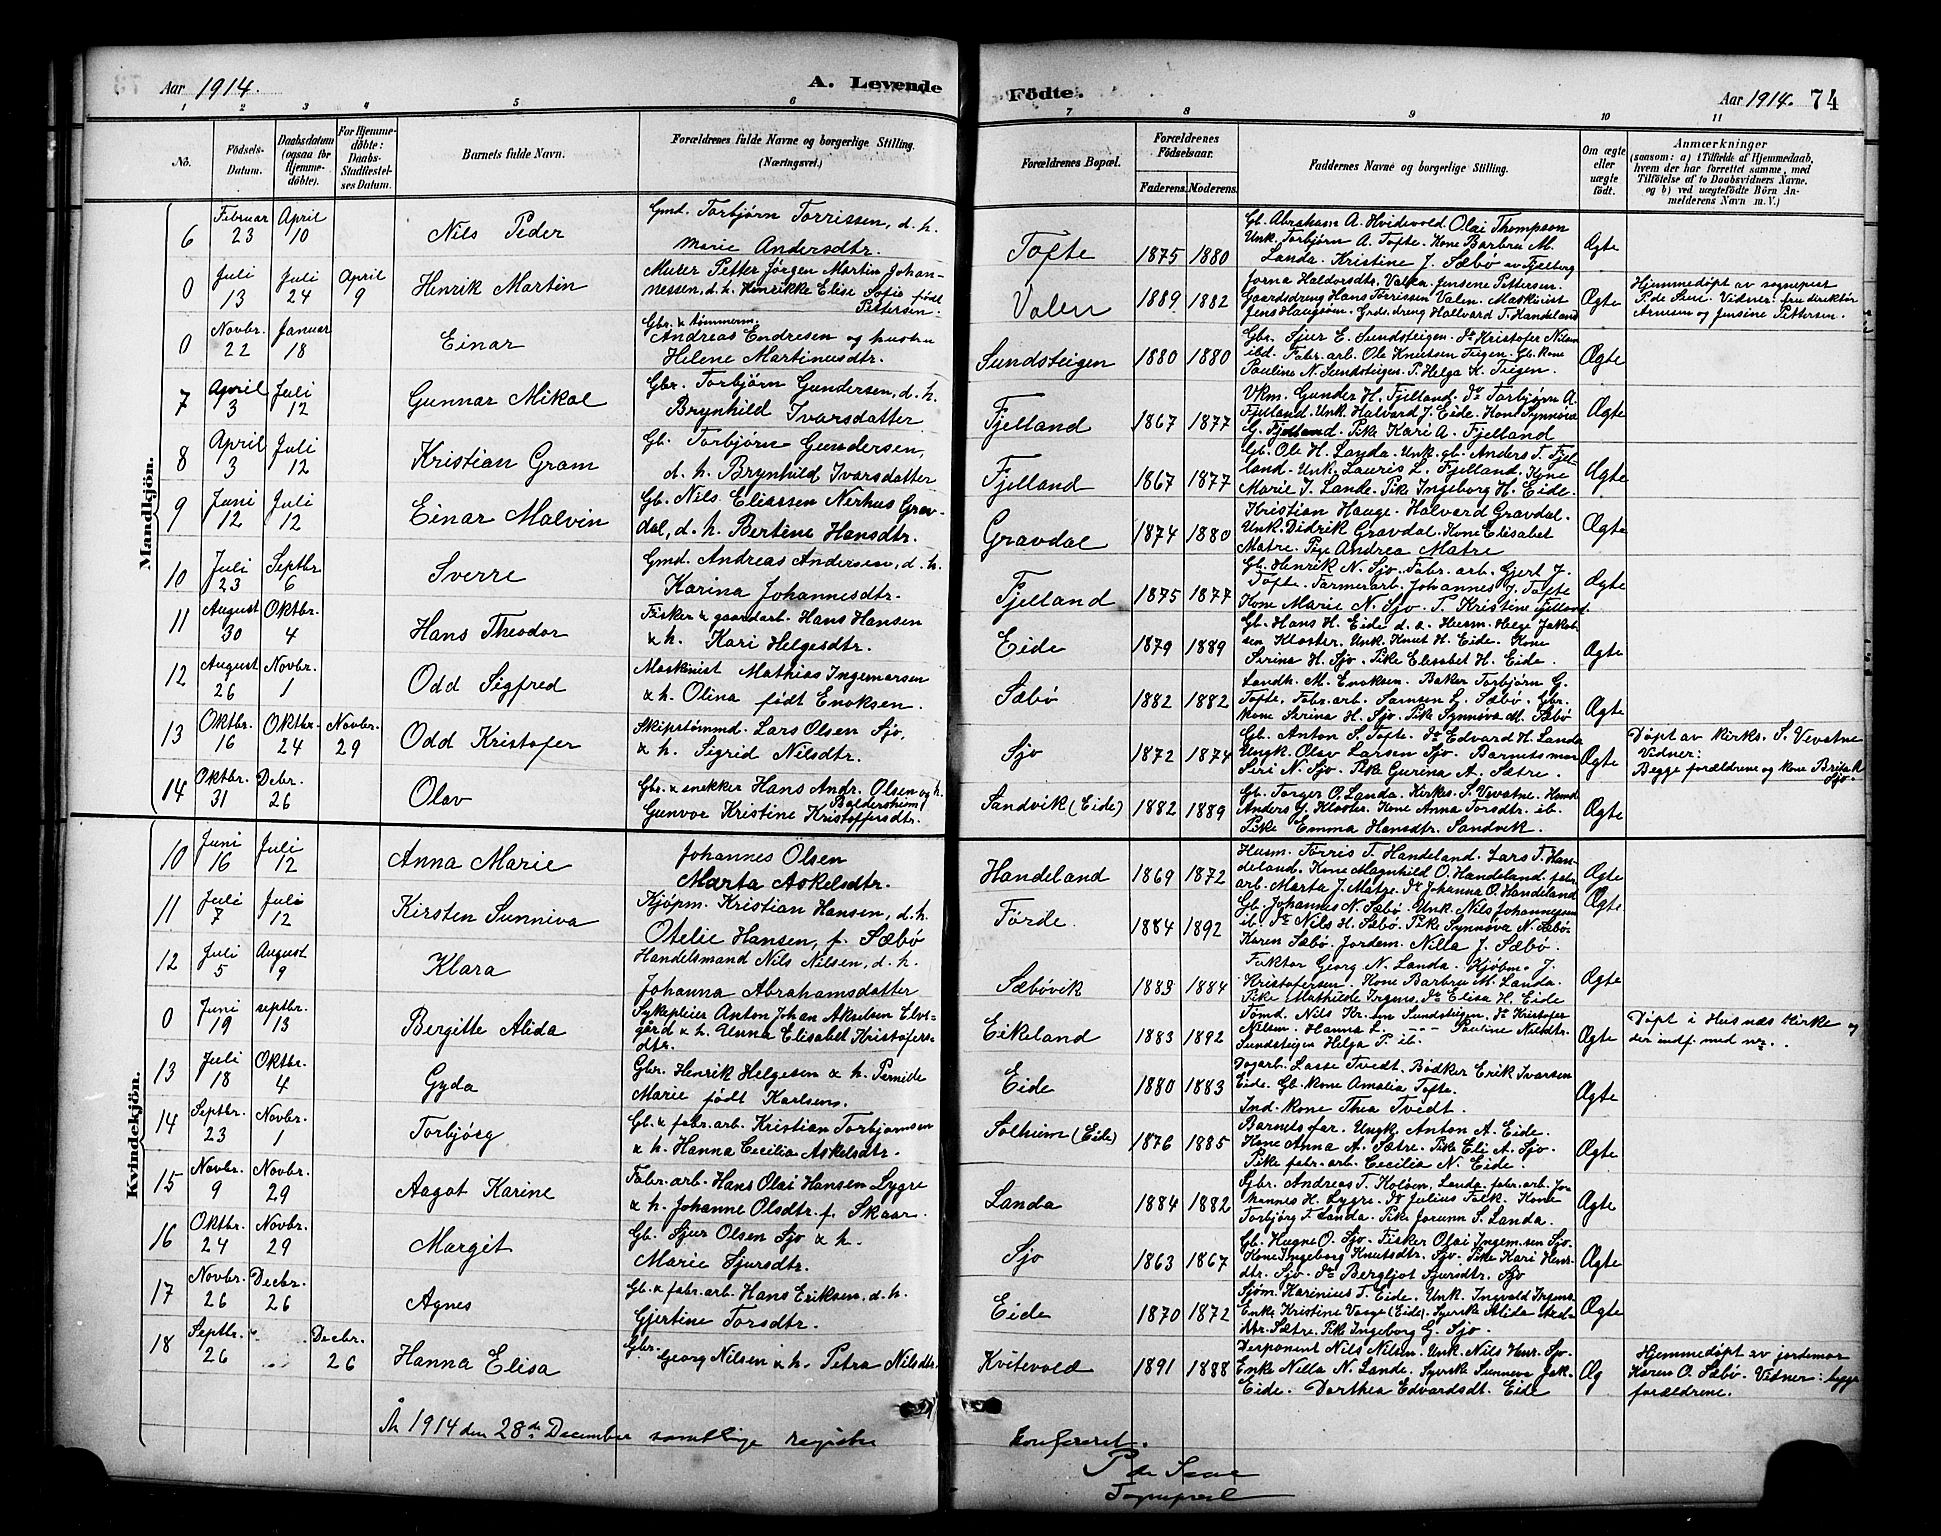 Aar 1914.
A. Levende
Födte.
Aar 1914. 74
1 2 3 4 5 6 7 8 9 10 11
No.
Födsels-Datum.
Daabsdatum (ogsaa for Hjemme-döbte).
For Hjemme-döbte: Daabs-Stadfæstel-ses Datum.
Barnets fulde Navn.
Forældrenes fulde Navne og borgerlige Stilling. (Næringsvei.)
Forældrenes Bopæl.
Forældrenes Födselsaar.
Faderens. Moderens.
Faddernes Navne og borgerlige Stilling.
Om ægte eller uægte födt.
Anmærkninger
(saasom: a) i Tilfælde af Hjemmedaab, hvem der har forrettet samme, med Tilföielse af to Daabsvidners Navne, og b) ved uægtefödte Börn An-melderens Navn m. V.)
Mandkjön.
6 Februar 23 April 10 Nils Peder
Gmd. Torbjørn Torrissen, d. h.
Marie Andersdtr.
Tofte 1875 1880
Gb. Abraham A. Hvidevold Olai Thompson
Unk. Torbjørn A. Tofte. Kone Barbru M.
Landa. Kristine J. Sæbö av Fjelberg
Ægte
0 Juli 13 Juli 24 April 9 Henrik Martin
Murer Petter Jörgen Martin Johan-
nessen, d. h. Henrikke Elise Sofie født
Pettersen.
Valen 1889 1882
Jorna Haldorsdtr. Valka. Jensene Pettersen.
Gaardsdreng Hans Torrissen Valen. Maskinist
Jens Haugsom. Gaardsdreng Hallvard T. Handeland
Ægte
Hjemmedöpt av sogneprest
P. de Seue. Vidner: fru direktör
Arnesen og Jensine Pettersen.
0 Novbr. 22 Januar 18 Einar
Gbr. & tømmerm.
Andreas Endresen og hustru
Helene Martinusdtr.
Sundsteigen 1880 1880
Gbr. Sjur E. Sundsteigen. Do Kristofer Nilsen
ibd. Fabr. arb. Ole Knutsen Teigen. Gb. kone
Pauline N. Sundsteigen. P. Helga K. Teigen.
Ægte
7 April 3 Juli 12 Gunnar Mikal
Gbr. Torbjörn Gundersen, d. h.
Brynhild Ivarsdatter
Fjelland 1867 1877
Vkm. Gunder H. Fjelland. Do Torbjörn A.
Fjelland. Unk. Halvard J. Eide. Kone Synnöva
G. Fjelland. Pike Kari A. Fjelland
Ægte
8 April 3 Juli 12 Kristian Gram
Gb. Torbjörn Gundersen,
d. h. Brynhild Ivarsdatter
Fjelland 1867 1877
Gb. Ole H. Landa. Unk. gb. Anders T. Fjel-
land. Unk. Lauris L. Fjelland. Kone
Marie J. Lande. Pike Ingeborg H. Eide.
Ægte
9 Juni 12 Juli 12 Einar Malvin
Gb. Nils Eliassen Nerhus Grav-
dal, d. h. Bertine Hansdtr.
Gravdal 1874 1880
Kristian Hauge. Halvard Gravdal.
Unk. Didrik Gravdal. Kone Elisabet
Matre. Pige Andrea Matre
Ægte
10 Juli 23 Septbr. 6 Sverre
Gmd. Andreas Andersen, d. h.
Karina Johannesdtr.
Fjelland 1875 1877
Gb. Henrik N. Sjo. Fabr. arb. Gjert J.
Tofte. Farmerarb. Johannes J. Tofte
Kone Marie N. Sjo. P. Kristine Fjelland.
Ægte
11 August 30 Oktbr. 4 Hans Theodor
Fisker & gaardarb. Hans Hansen
& h. Kari Helgesdtr.
Eide 1879 1889
Gb. Hans H. Eide d. e. Husm. Helge Jakob-
sen Kloster. Unk. Knut H. Eide. Kone
Serina H. Sjo. Pike Elisabet H. Eide.
Ægte
12 August 26 Novbr. 1 Odd Sigfred
Maskinist Mathias Ingemarsen
& h. Olina født Enoksen.
Sæbö 1882 1882
Landh. M. Enoksen. Baker Torbjörn G.
Tofte. Fabr. arb. Samson G. Sæbö. Gbr.
kone Serina H. Sjo. Pike Synnöva M. Sæbö
Ægte
13 Oktbr. 16 Oktbr. 24 Novbr. 29 Odd Kristofer
Skipstømmd. Lars Olsen Sjo,
& h. Sigrid Nilsdtr.
Sjo 1872 1874
Gb. Anton S. Tofte. Do Edvard H. Landa
Ungk. Olav Larsen Sjo. Barnets mor
Siri N. Sjo. Pike Gurina A. Sætre.
Ægte
Döpt av kirks. S. Vevatne
Vidner:
Begge forældrene og kone Brita K
Sjo.
14 Oktbr. 31 Debr. 26 Olav
Gbr. & snekker Hans Andr. Olsen og h.
Baldersheim
Gunvor Kristine Kristoffersdtr.
Sandvik (Eide) 1882 1889
Gb. Torger O. Landa. Kirkes. S. Vevatne. Hand
Anders G. Kloster. Kone Anna Torsdtr. ib.
Pike Emma Hansdtr. Sandvik.
Ægte
Kvindekjön.
10 Juni 16 Juli 12 Anna Marie
Johannes Olsen
Marta Askelsdtr.
Handeland 1869 1872
Husm. Torris T. Handeland. Lars T. Han-
deland. Kone Magnhild O. Handeland. fabr
arb. Marta J. Matre. Do Johanna O. Handeland
Ægte
11 Juli 7 Juli 12 Kirsten Sunniva
Kjöpm. Kristian Hansen, d. h.
Otelie Hansen, f. Sæbö
Förde. 1884 1892
Gb. Johannes N. Sæbö. Unk. Nils Johannessen
ib. Do Nils H. Sæbö. Pike Synnöva N. Sæbö.
Karen Sæbö. Jordem. Nilla J. Sæbö.
Ægte
12 Juli 5 August 9 Klara
Handelsmand Nils Nilsen, d. h.
Johanna Abrahamsdatter
Sæbövik 1883 1884
Faktor Georg N. Landa. Kjöbm. J.
Kristofersen. Kone Barbru M. Landa.
Pike Mathilde Irgens, Do Elisa H. Eide
Ægte
0 Juni 19 septbr. 13 Bergitte Alida
Sykepleier Anton Johan Akselsen Elvs-
gård & h. Unna Elisabet Kristofers-
dtr.
Eikeland 1883 1892
Tømd. Nils Kr.sen Sundsteigen, Do Kristofer
Nilsen. Hanna L. --- Pauline Nilsdtr.
Sundsteigen Helga P. ib.
Ægte
Döpt i Husnes kirke og
der indf. med nr. .
13 Juli 18 Oktbr. 4 Gyda
Gbr. Henrik Helgesen & h. Pernilde
Marie født Karlsen.
Eide 1880 1883
Dagarb. Lasse Tvedt. Bödker Erik Ivarsen
Eide. Gb. kone Amalia Tofte.
Ind. kone Thea Tvedt.
Ægte
14 Septbr. 23 Novbr. 1 Torbjörg
Gb. & fabr. arb. Kristian Torbjørnsen
& h. Hanna Cecilia Askelsdtr.
Solheim (Eide) 1876 1885
Barnets far. Ungk. Anton A. Eide.
Kone Anna A. Sætre. Pike Eli A. Sjo.
Pike fabr. arb. Cecilia N. Eide.
Ægte
15 Novbr. 9 Novbr. 29 Aagot Karine
Fabr. arb. Hans Olai Hansen Lygre
& h. Johanne Olsdtr. f. Skaar.
Landa 1884 1882
Gbr. Andreas T. Holöen, Landa. fabr. arb. Jo-
hannes H. Lygre. Do Julius Falk. Kone
Torbjörg F. Landa. Pike Jorunn S. Landa.
Ægte
16 Oktbr. 24 Novbr. 29 Margit
Gb. Sjur Olsen Sjo & h.
Marie Sjursdtr.
Sjo 1863 1867
Gb. Hogne O. Sjo. Fisker Olai Ingemsen Sjo.
Kone Ingeborg Knutsdtr. Sjo. Pike Kari Hans-
dtr. Sjo. Do Bergljot Sjursdtr. Sjo
Ægte
17 Novbr. 26 Decbr. 26 Agnes
Gb. & fabr. arb. Hans Eriksen, d. h.
Gjertine Torsdtr.
Eide 1870 1872
Sjöm. Karinius T. Eide. Unk. Ingvald Irgens.
Enke Kristine Vaage (Eide). Syerske Alida Sted-
dtr. Sætre. Pike Ingeborg G. Sjo.
Ægte
18 Septbr. 26 Decbr. 26 Hanna Elisa
Gbr. Georg Nilsen & h. Petra Nilsdtr.
Kvitevold 1891 1888
Derponent Nils Nilsen. Unk. Nils Henr. Sjo.
Enke Nilla N. Lande. Syerske Sunneva Jak.
Eide. Dorthea Edvardsdt. Eide
Æg
Hjemmedöpt av jordemor
Karen O. Sæbö. Vidner: begge
forældrene.
År 1914 den 28de December samtlige registre
konfereret.
P de Seue
Sogneprest